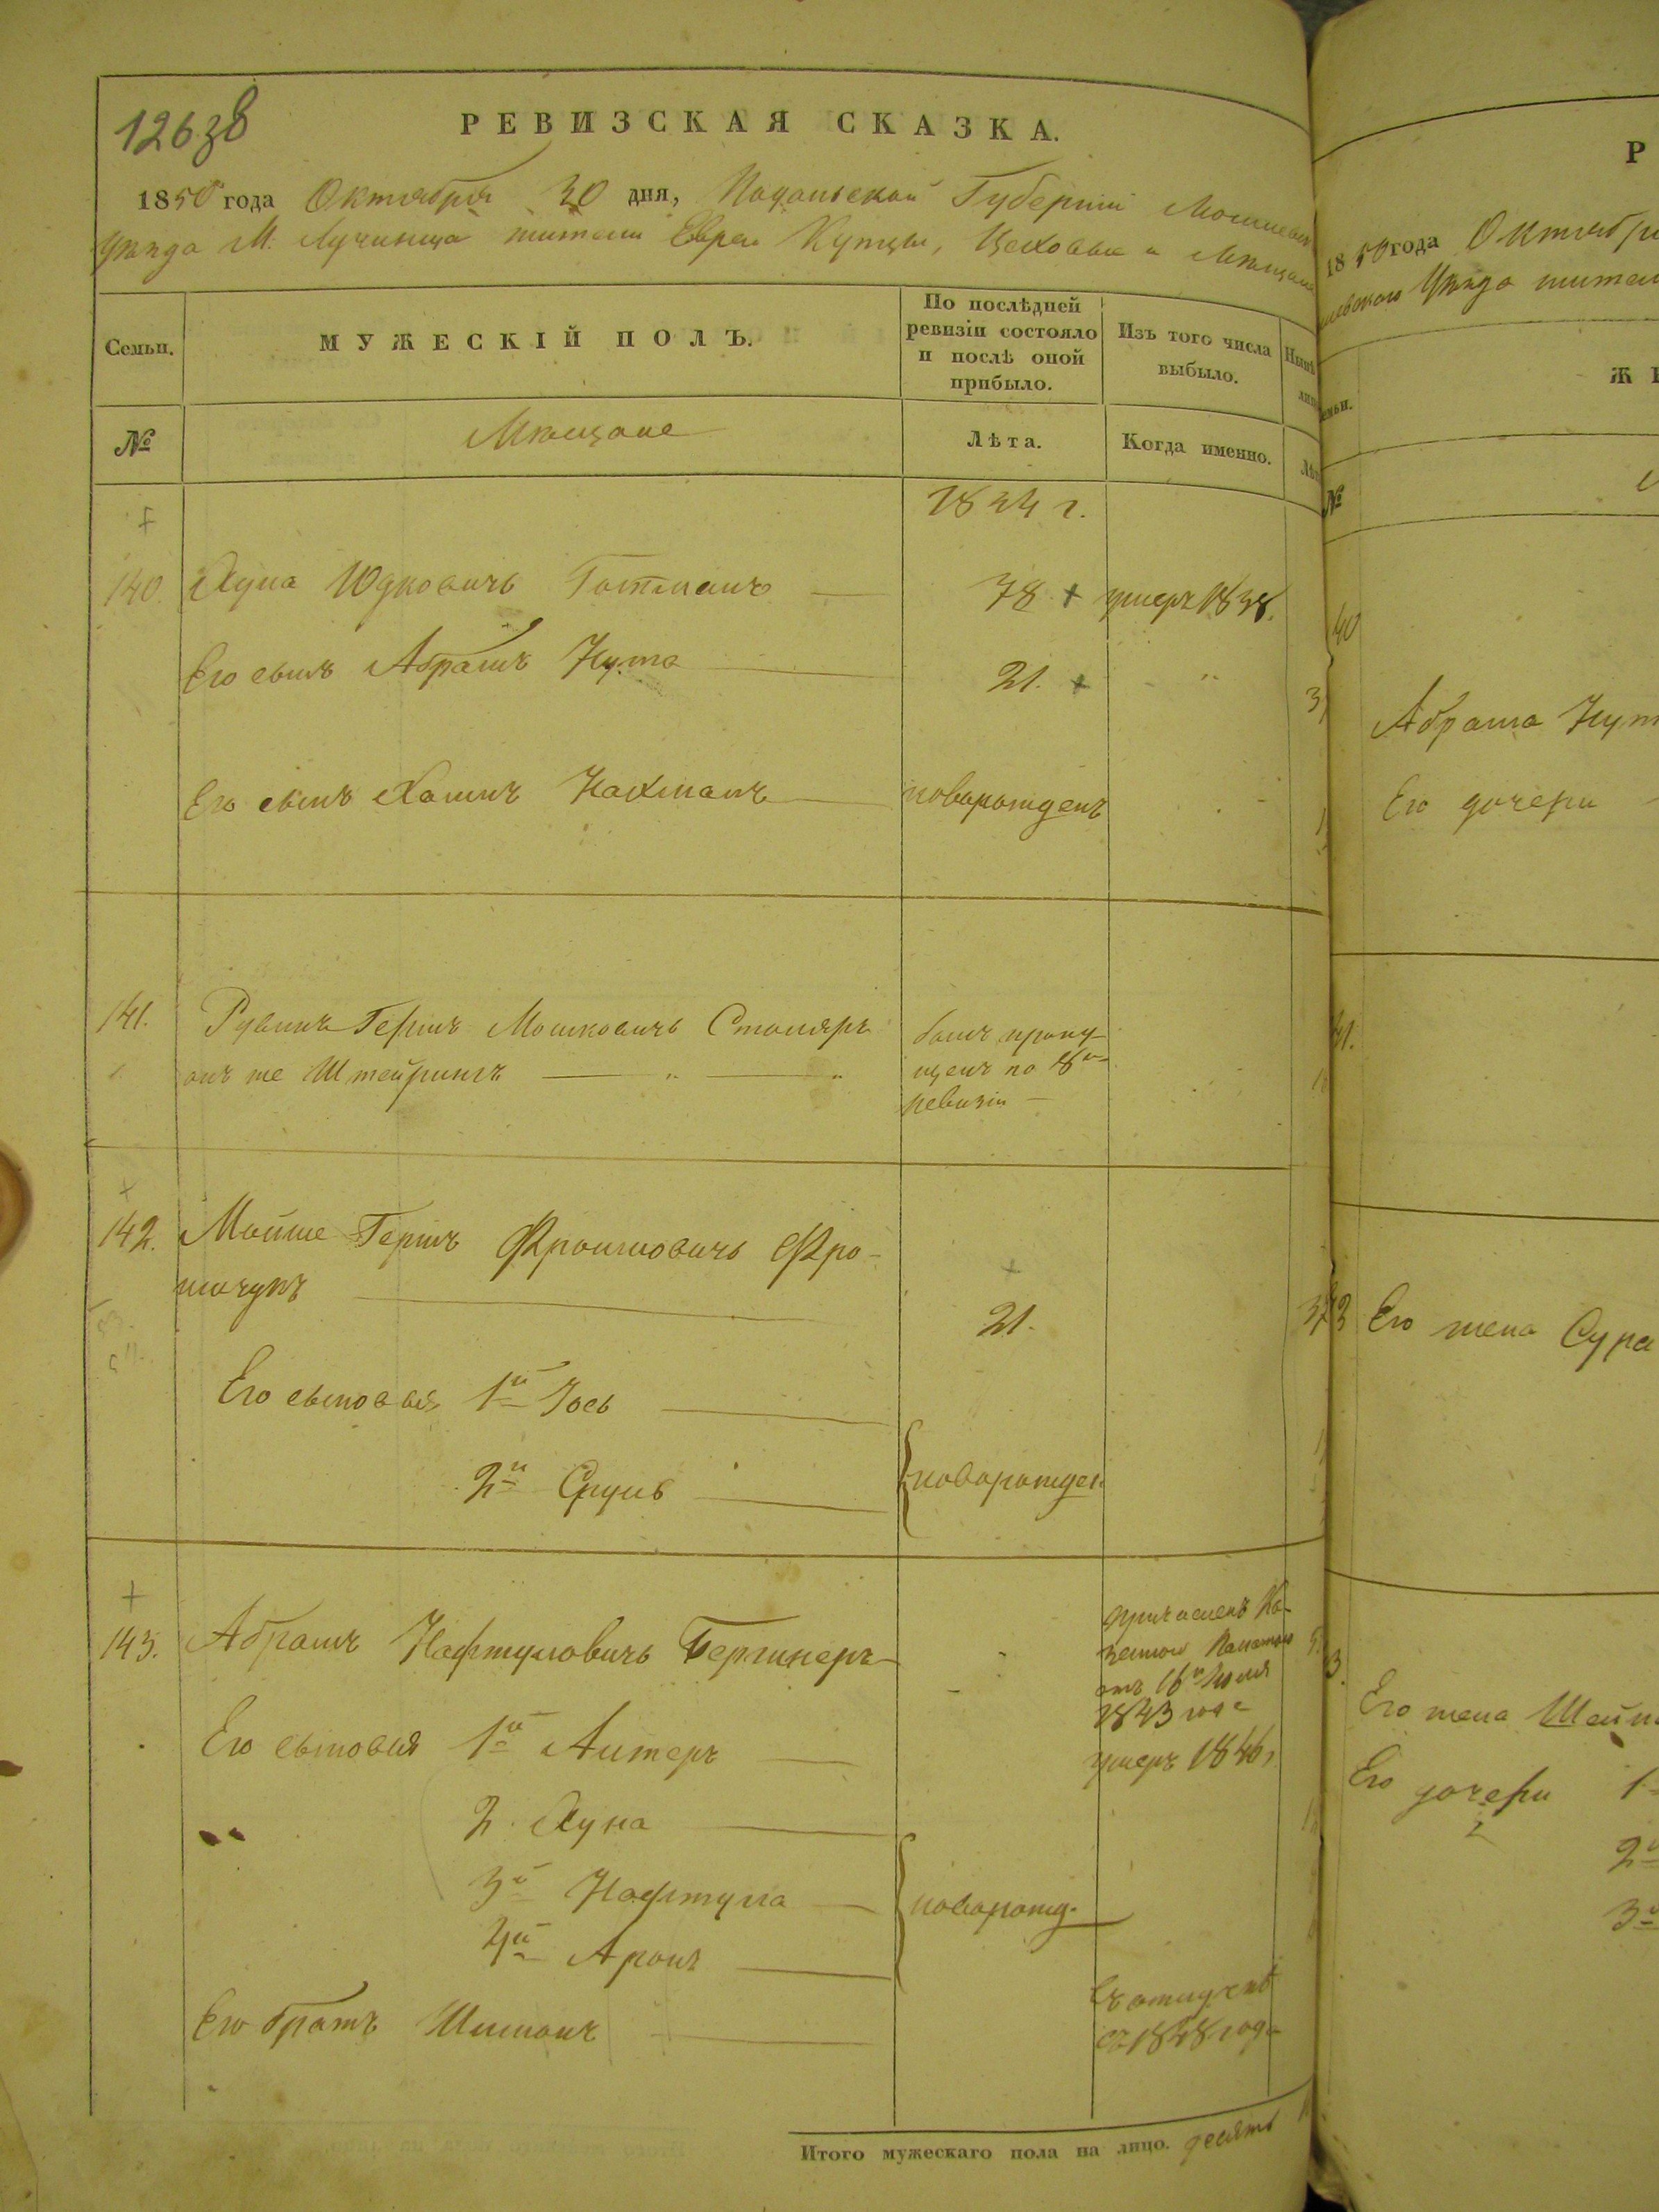 126 зв
РЕВИЗСКАЯ СКАЗКА.
1850 года Октября 30 дня, Подольской Губернiи
Уѣзда М. Лучинца жители Евреи Купцы, Цеховые и Мѣщане
Семьи.
МУЖЕСКIЙ ПОЛЪ.
По послѣдней
ревизiи состояло
и послѣ оной
прибыло.
Изъ того числа
выбыло.
№
Мѣщане
Лѣта.
Когда именно.
1834 г.
140. Хуна Юдковичъ Готманъ 38 умеръ 1838.
Его сынъ Абрамъ Нута 21.
Его сынъ Хаимъ Нахманъ новорожденъ
141. Рувинъ Гершъ Мошковичъ Столяръ
онъ же Штейрингъ
былъ пропу-
щенъ по 8й
ревизiи
142. Мойше Гершъ Фроимовичъ Фро-
имчукъ
21.
Его сыновья 1й Iось
2й Сруль
новорожден.
143. Абрамъ Нафтуловичъ Бергинеръ
причисленъ Ка-
зенною Палатою
отъ 16го Июля
1843 года
Его сыновья 1й Алтеръ умеръ 1846 г.
2. Хуна
3й Нафтула
новорожд.
4й Аронъ
Его братъ Шимонъ
въ отлучкѣ
съ 1848 года
Итого мужескаго пола на лицо. десять
Р
1850 года Октября
Уѣзда жители
№
Абрама Нут
Его дочери
Его жена Сура
Его жена Шейн
Его дочери 1
2й
3й